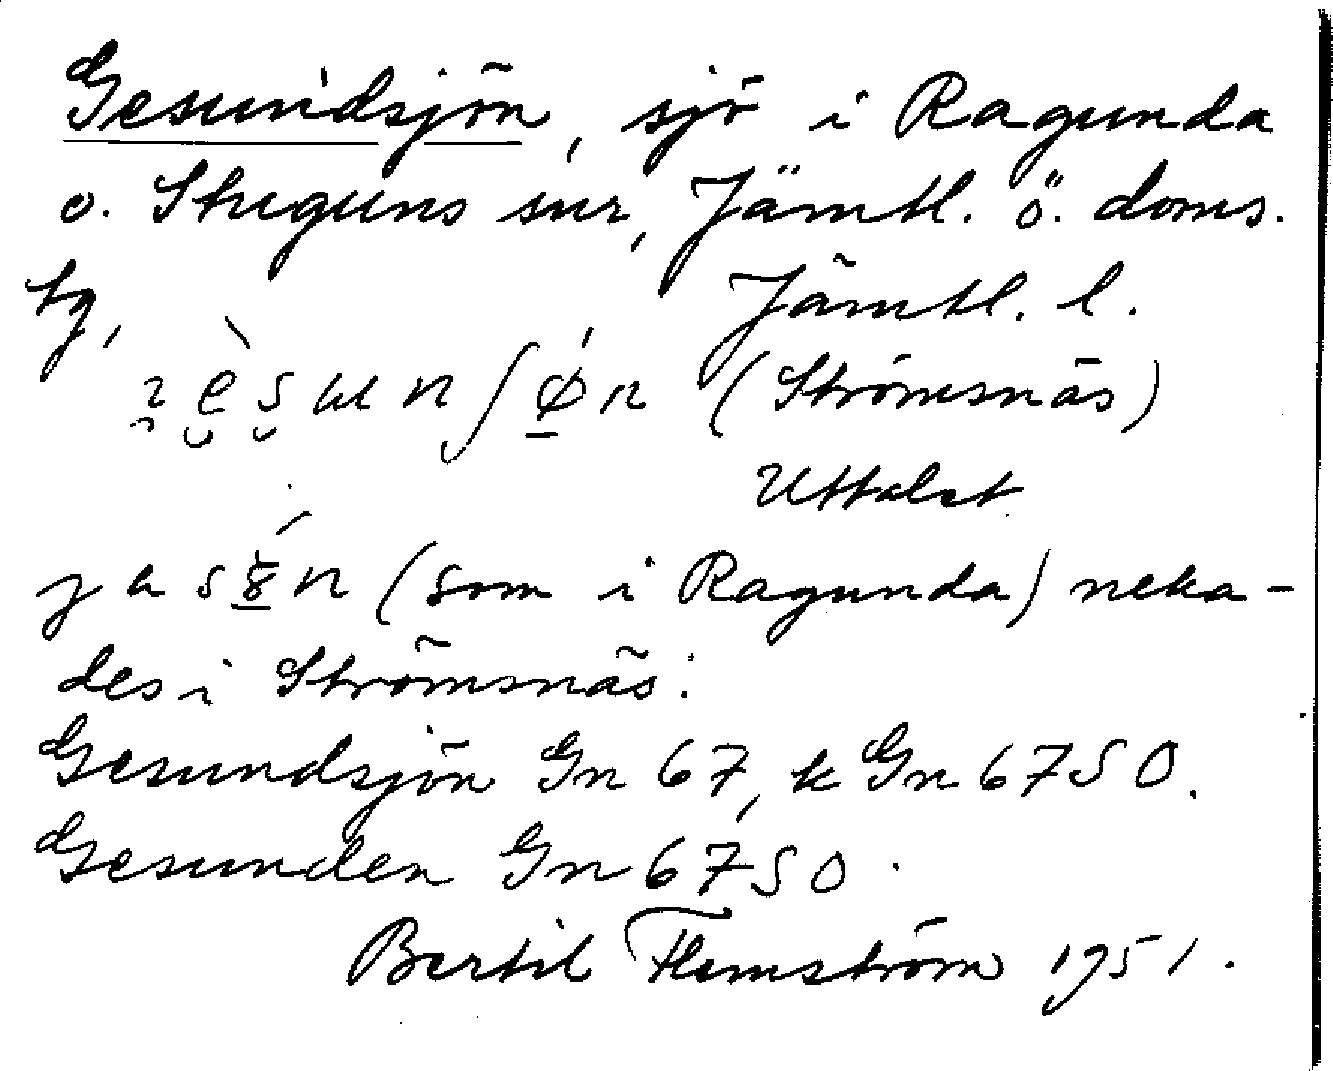 Gesundsjön, sjö i Ragunda
o. Stuguns snr, Jämtl. ö. doms.
tg,
Jämtl. l.
(Strömsnäs)
Uttalet
(som i Ragunda) neka-
des i Strömsnäs:
Gesundsjön Gn 67, k Gn 67 SO.
Gesunden Gn 67 SO.
Bertil Flemström 1951.